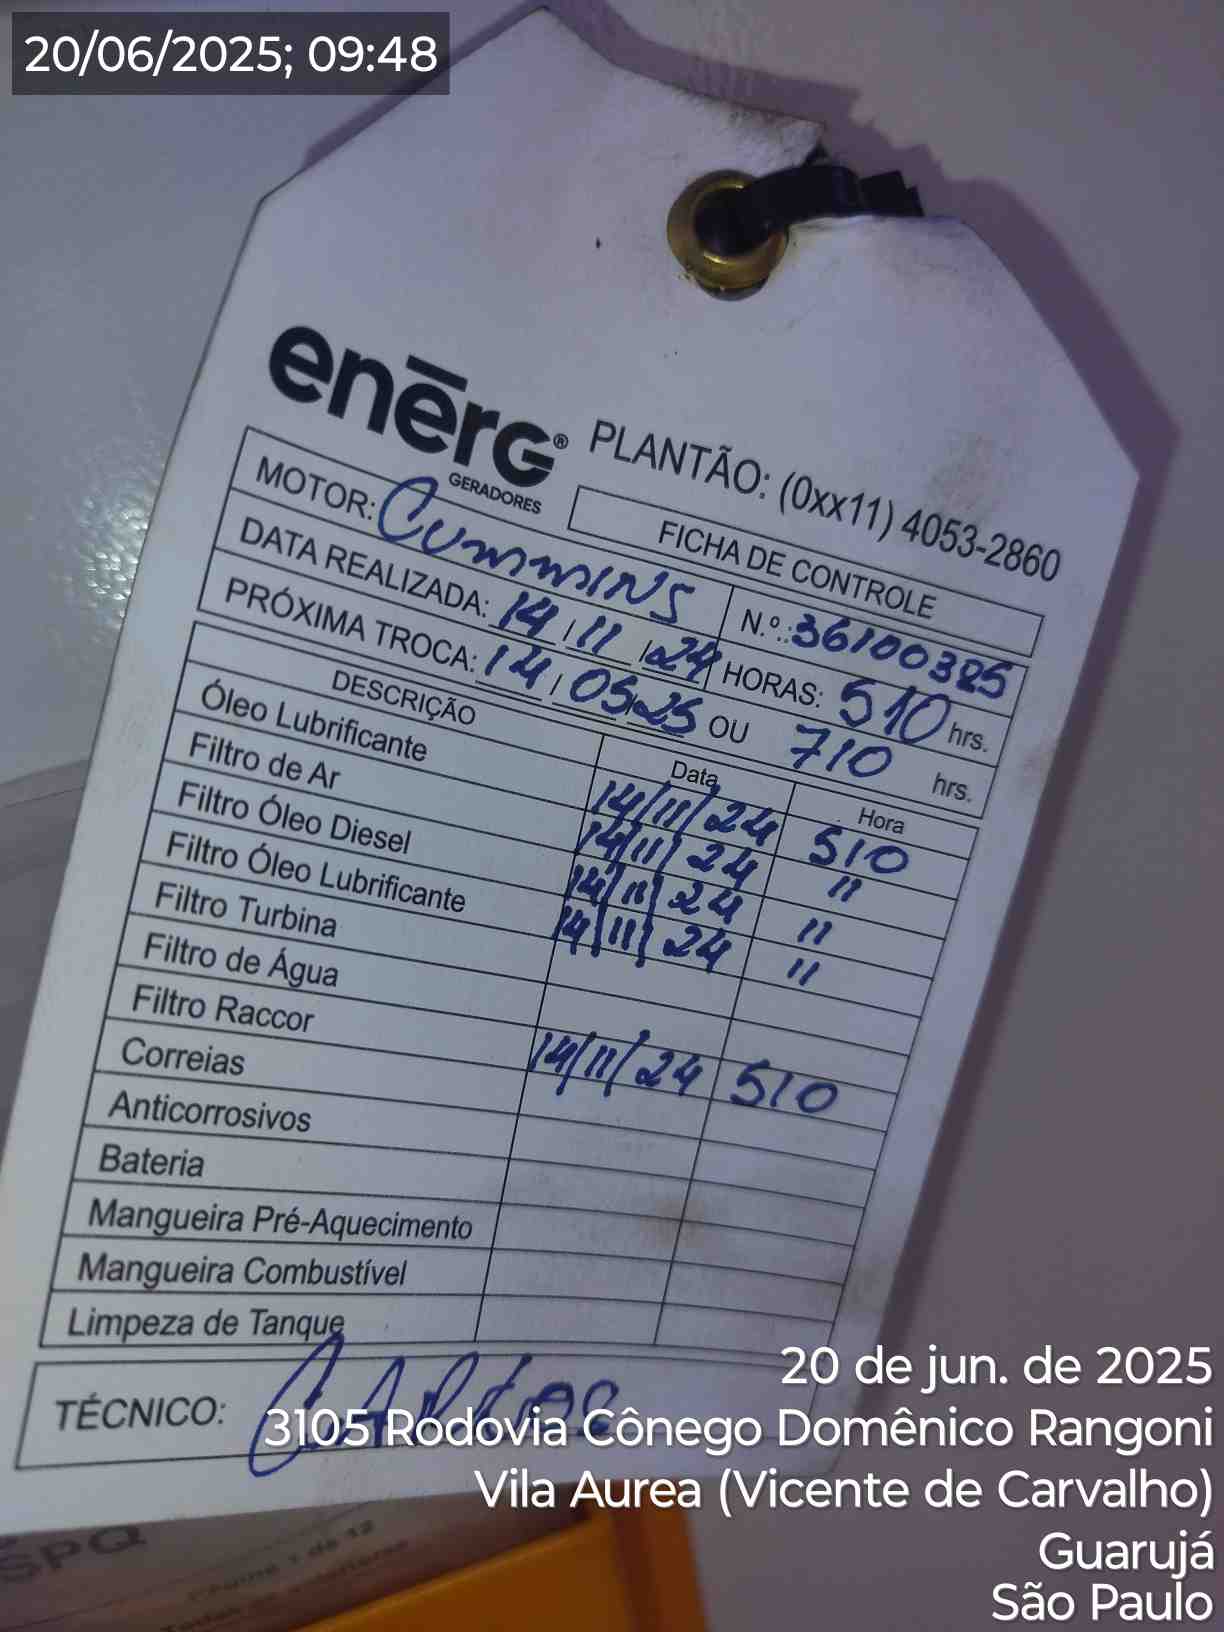 20/06/2025; 09:48
enērG®
GERADORES
PLANTÃO: (0xx11) 4053-2860
FICHA DE CONTROLE
MOTOR: CUMMINS N.º.: 36100385
DATA REALIZADA: 14/11/24 HORAS: 510 hrs.
PRÓXIMA TROCA: 14/05/25 OU 710 hrs.
DESCRIÇÃO Data Hora
Óleo Lubrificante 14/11/24 510
Filtro de Ar 14/11/24 "
Filtro Óleo Diesel 14/11/24 "
Filtro Óleo Lubrificante 14/11/24 "
Filtro Turbina
Filtro de Água
Filtro Raccor 14/11/24 510
Correias
Anticorrosivos
Bateria
Mangueira Pré-Aquecimento
Mangueira Combustível
Limpeza de Tanque
TÉCNICO: CARLOS
20 de jun. de 2025
3105 Rodovia Cônego Domênico Rangoni
Vila Aurea (Vicente de Carvalho)
Guarujá
São Paulo
SPQ
1 de 12